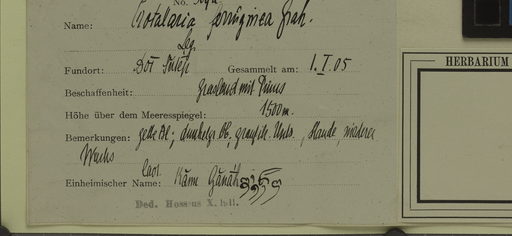 No.
Name: Crotalaria ferruginea Grah.
Leg.
Fundort: Doi Sutep Gesammelt am: 1.I.05
HERBARIUM
Beschaffenheit: Grasland mit Pinus
Höhe über dem Meeresspiegel: 1500 m.
Bemerkungen: gelbe Bl; dunkelgr. Ob., graugr. Unts., Staude, niederer
Wuchs
Einheimischer Name: Laot.
Ded. Hosseus X.